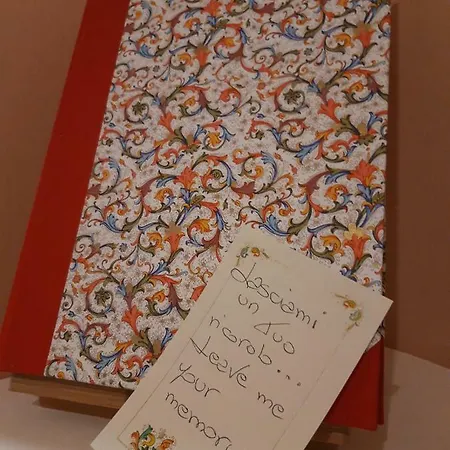 Lasciami
un tuo
ricordo...
Leave me
your
memory